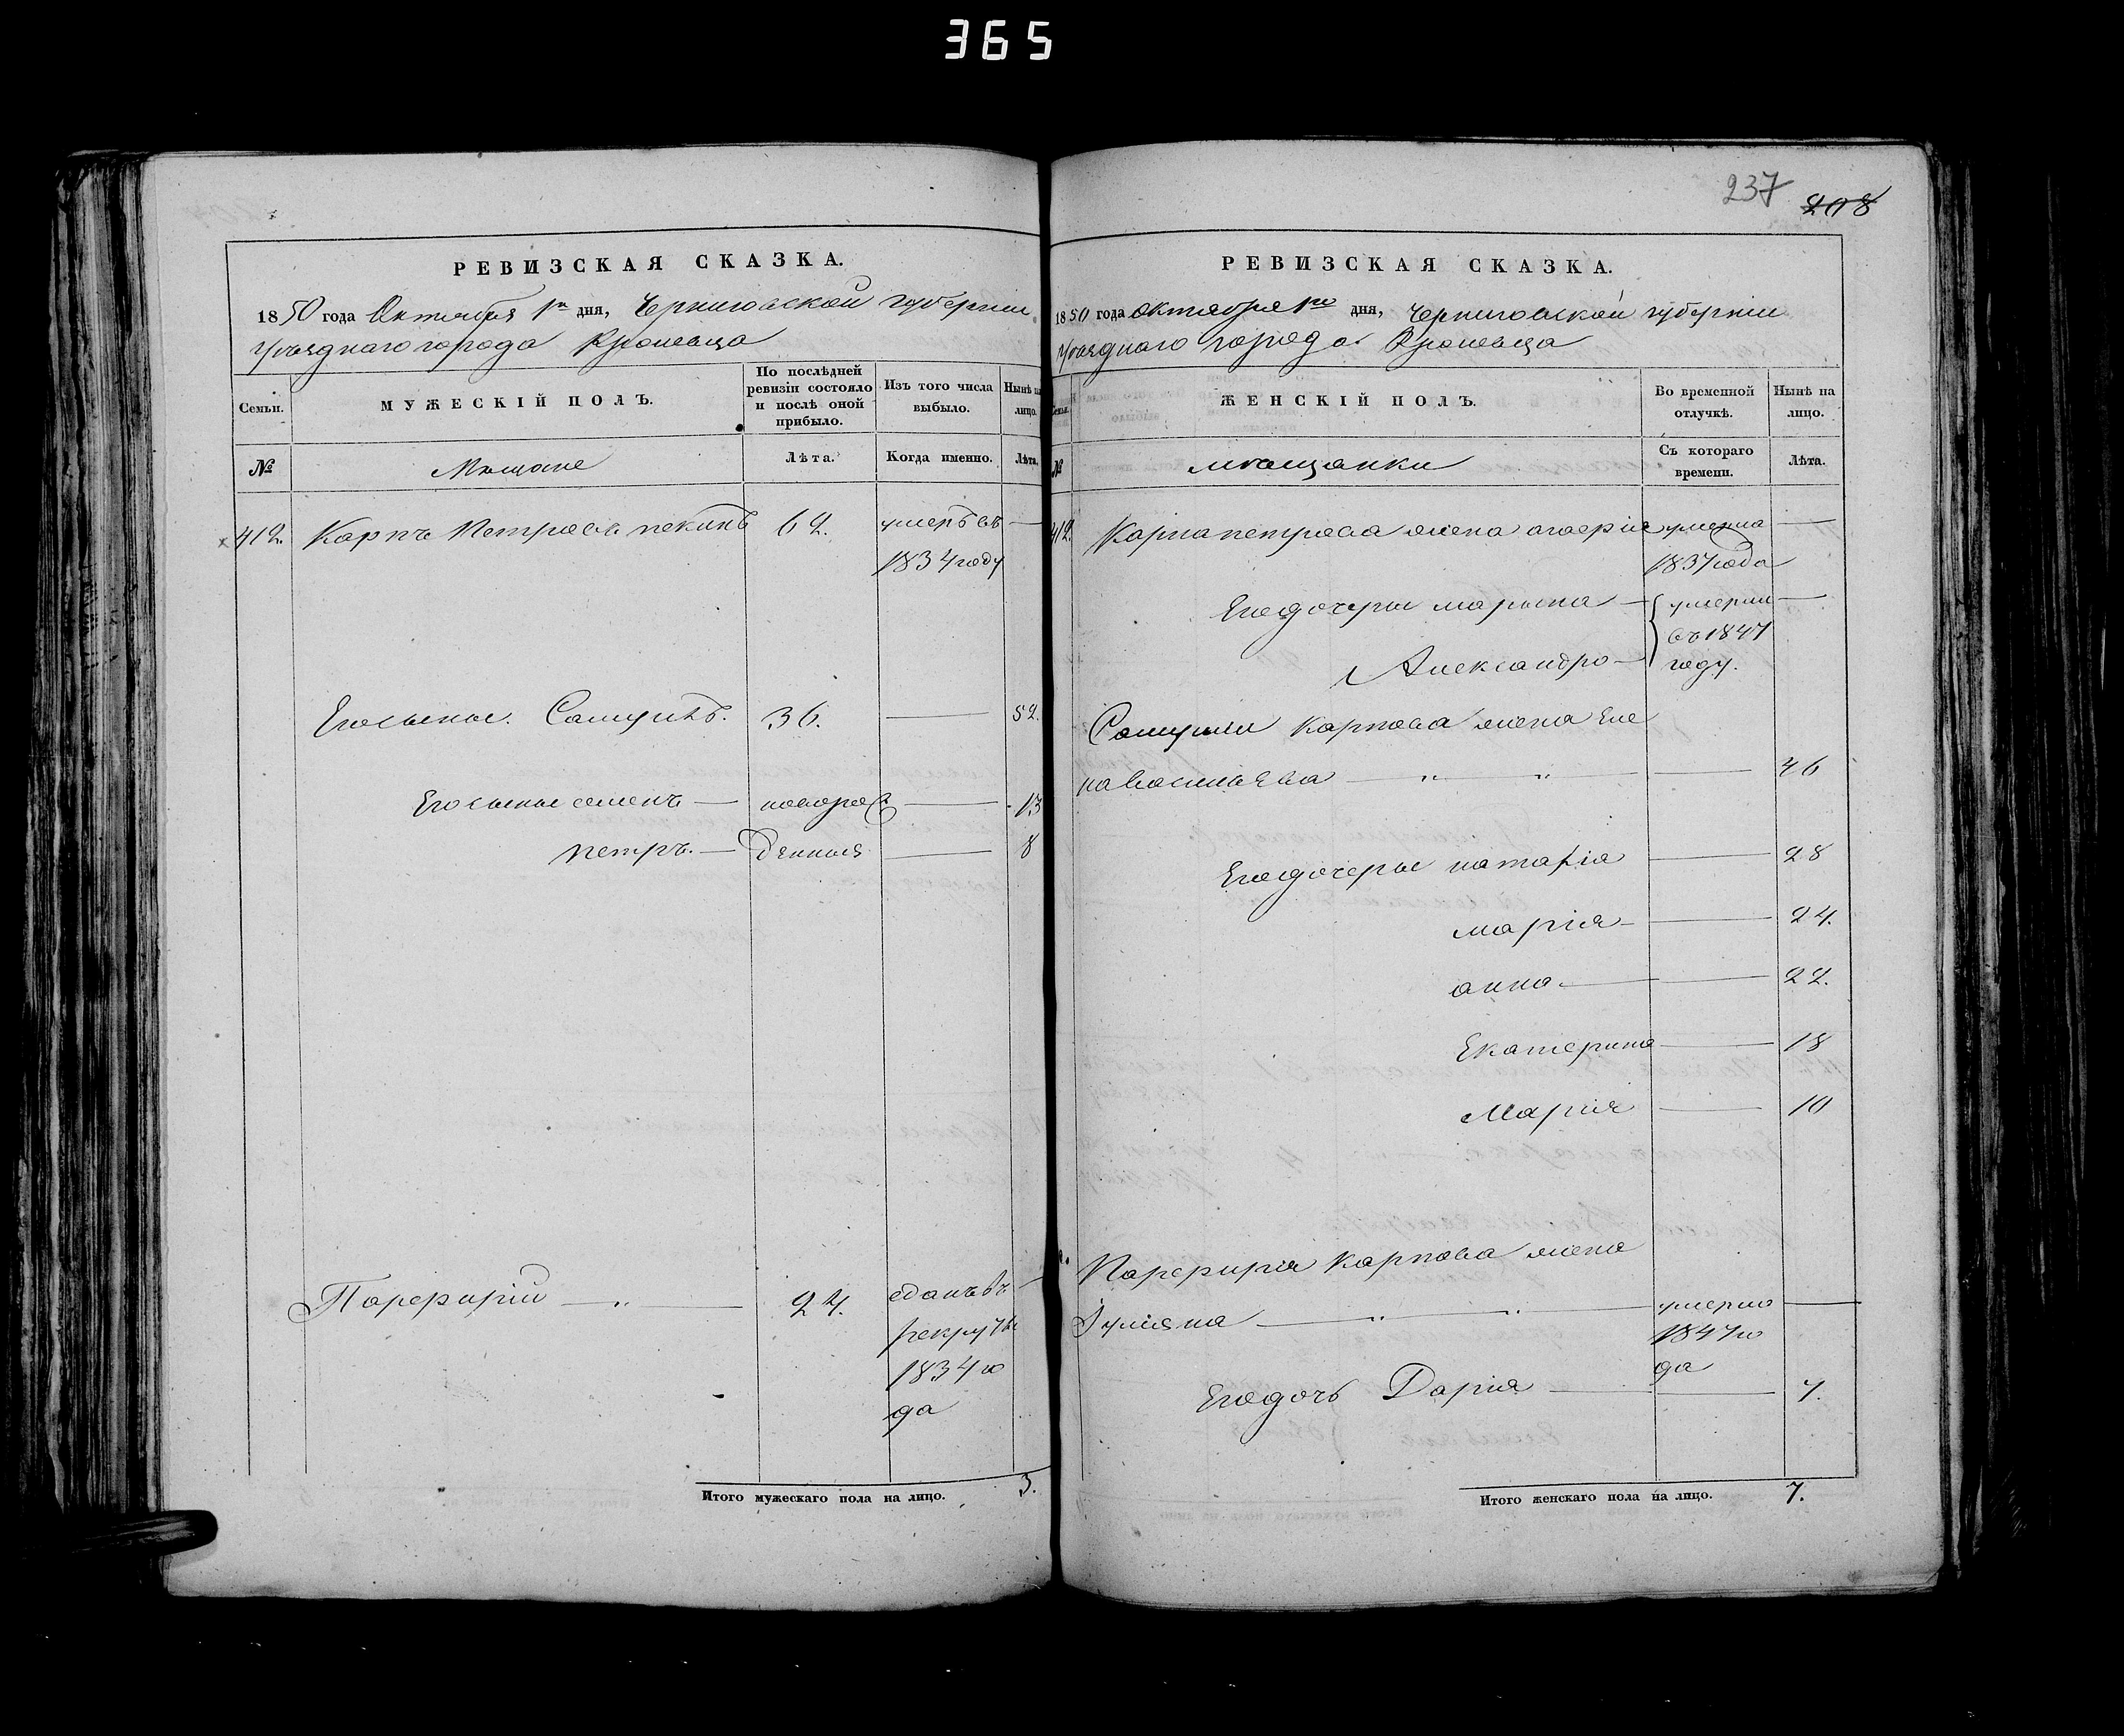 365
РЕВИЗСКАЯ СКАЗКА.
1850 года Октября 1го дня, Черниговской губерніи
Уѣзднаго города Кролевца
Семьи.
МУЖЕСКІЙ ПОЛЪ.
По послѣдней ревизіи состояло и послѣ оной прибыло.
Изъ того числа выбыло.
Нынѣ на лицо.
№
Мѣщане
Лѣта.
Когда именно.
Лѣта.
412. Карпъ Петровъ 62. умеръ въ —
1834 году
Его сынъ. Самуилъ. 36. — 52.
Его сынъ семенъ — новорож — 13
петръ. — денныя — 8
Парфирій — " — 24. сданъ въ —
рекруты
1834 го
да
Итого мужескаго пола на лицо. 3.
237
208
РЕВИЗСКАЯ СКАЗКА.
1850 года октября 1го дня, Черниговской губерніи
Уѣзднаго города Кролевца
Семьи.
ЖЕНСКІЙ ПОЛЪ.
Во временной отлучкѣ.
Нынѣ на лицо.
№
мѣщанки
Съ котораго времени.
Лѣта.
412. Карпа петрова жена умерла —
1837 года
Его дочери марина — умерли —
Александра — въ 1847
году.
Самуила Карпова жена Еле
на васильева — " " — 46
Его дочери наталія — 28
марія — 24.
анна — 22.
Екатерина — 18
Марія — 10
Парфирія Карпова жена
Іуліяна — " " — умерла —
1847 го
да
Его дочь Дарія — 7.
Итого женскаго пола на лицо. 7.